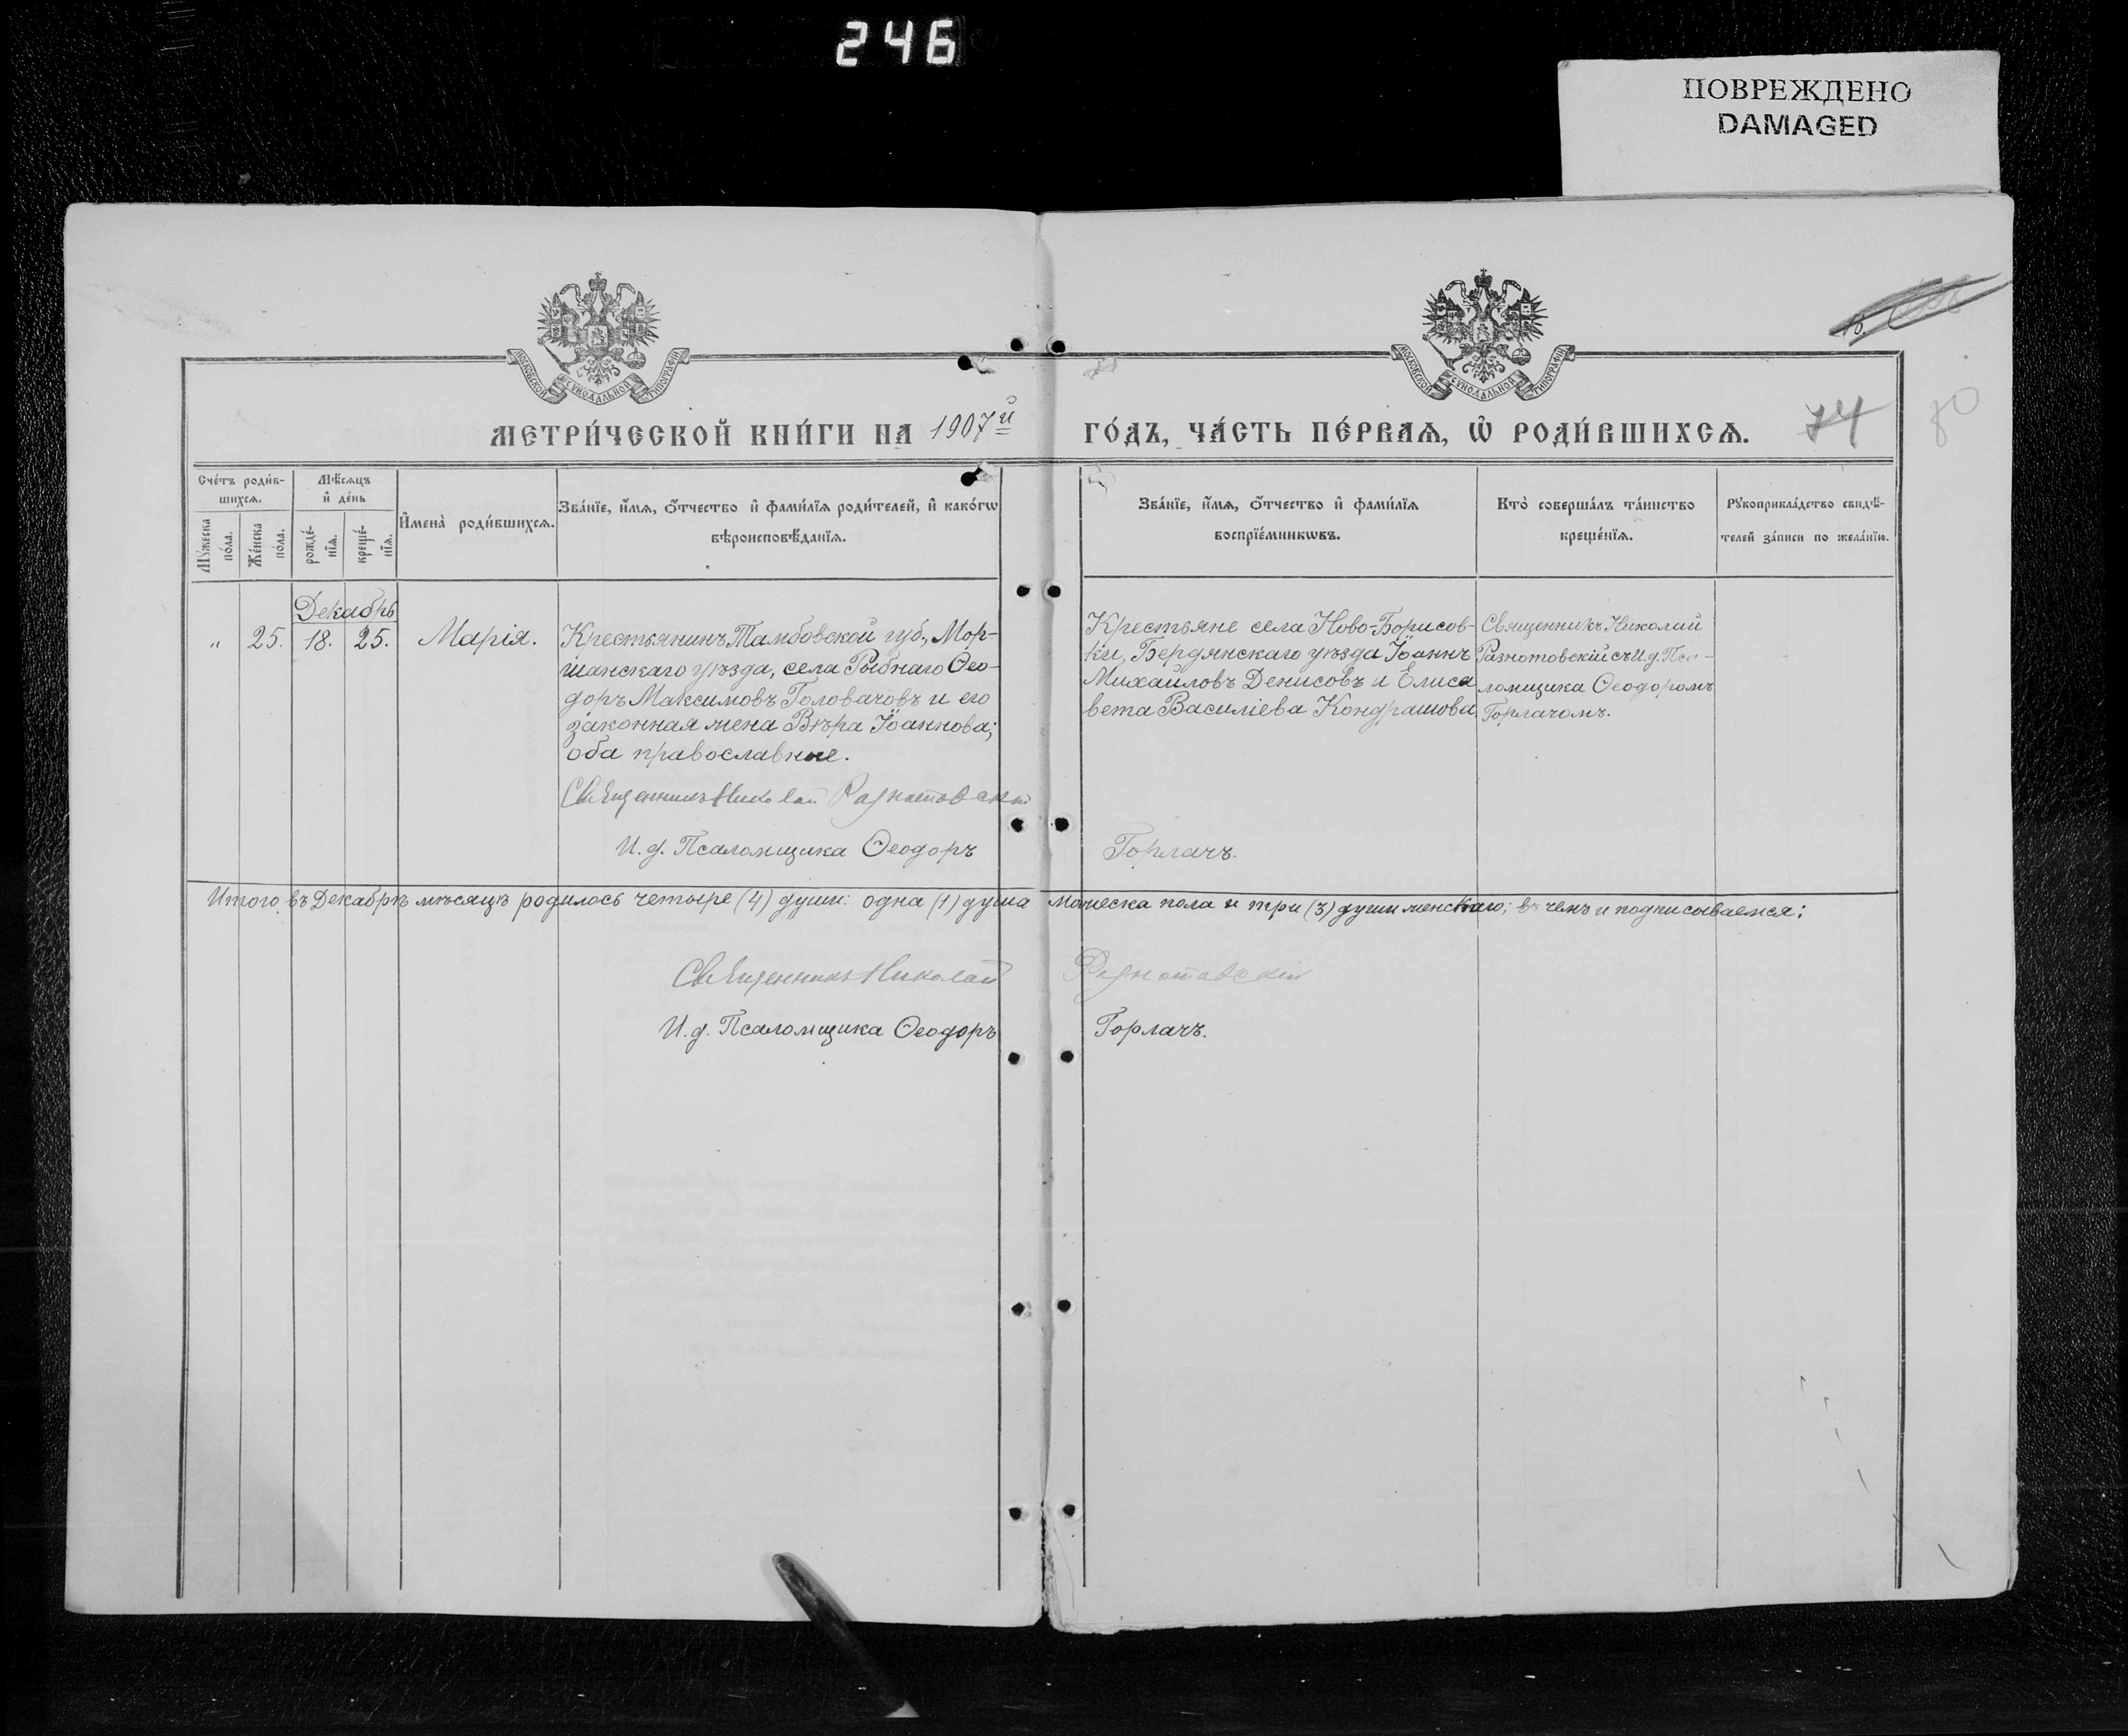 246
ПОВРЕЖДЕНО
DAMAGED
МОСКОВСКОЙ СѴНОДАЛЬНОЙ ТИПОГРАФІИ
МОСКОВСКОЙ СѴНОДАЛЬНОЙ ТИПОГРАФІИ
МЕТРИ́ЧЕСКОЙ КНИ́ГИ НА 1907й ГО́ДЪ, ЧА́СТЬ ПЕ́РВАѦ, Ѡ РОДИ́ВШИХСѦ. 74 80
Сче́тъ роди́в-
шихсѧ.
Му́жеска по́ла.
Же́нска по́ла.
Мѣ́сѧцъ
и҆ де́нь
рожде́-
нїѧ.
креще́-
нїѧ.
И҆мена̀ роди́вшихсѧ.
Зва́нїе, и҆́мѧ, ѻ҆́тчество и҆ фами́лїѧ роди́телей, и҆ како́гѡ
вѣроисповѣ́данїѧ.
Зва́нїе, и҆́мѧ, ѻ҆́тчество и҆ фами́лїѧ
воспрїе́мникѡвъ.
Кто̀ соверша́лъ та́инство
креще́нїѧ.
Рꙋкоприкла́дство свидѣ́-
телей за́писи по жела́нїю.
Декабрь
„ 25. 18. 25. Марія.
Крестьянинъ Тамбовской губ., Мор-
шанскаго уѣзда, села Рыбнаго Ѳео-
доръ Максимовъ Головачовъ и его
законная жена Вѣра Іоаннова;
оба православные.
Крестьяне села Ново-Борисов-
ки, Бердянскаго уѣзда Іоаннъ
Михайловъ Денисовъ и Елиса
вета Василіева Кондрашова.
Священникъ Николай
Разнотовскій съ И.д. Пса-
ломщика Ѳеодоромъ
Горлачомъ.
Священникъ Николай Разнотовскій
И. д. Псаломщика Ѳеодоръ Горлачъ.
Итого въ Декабрѣ мѣсяцѣ родилось четыре (4) души: одна (1) душа мужеска пола и три (3) души женскаго; въ чемъ и подписываемся:
Священникъ Николай Разнотовскій
И. д. Псаломщика Ѳеодоръ Горлачъ.